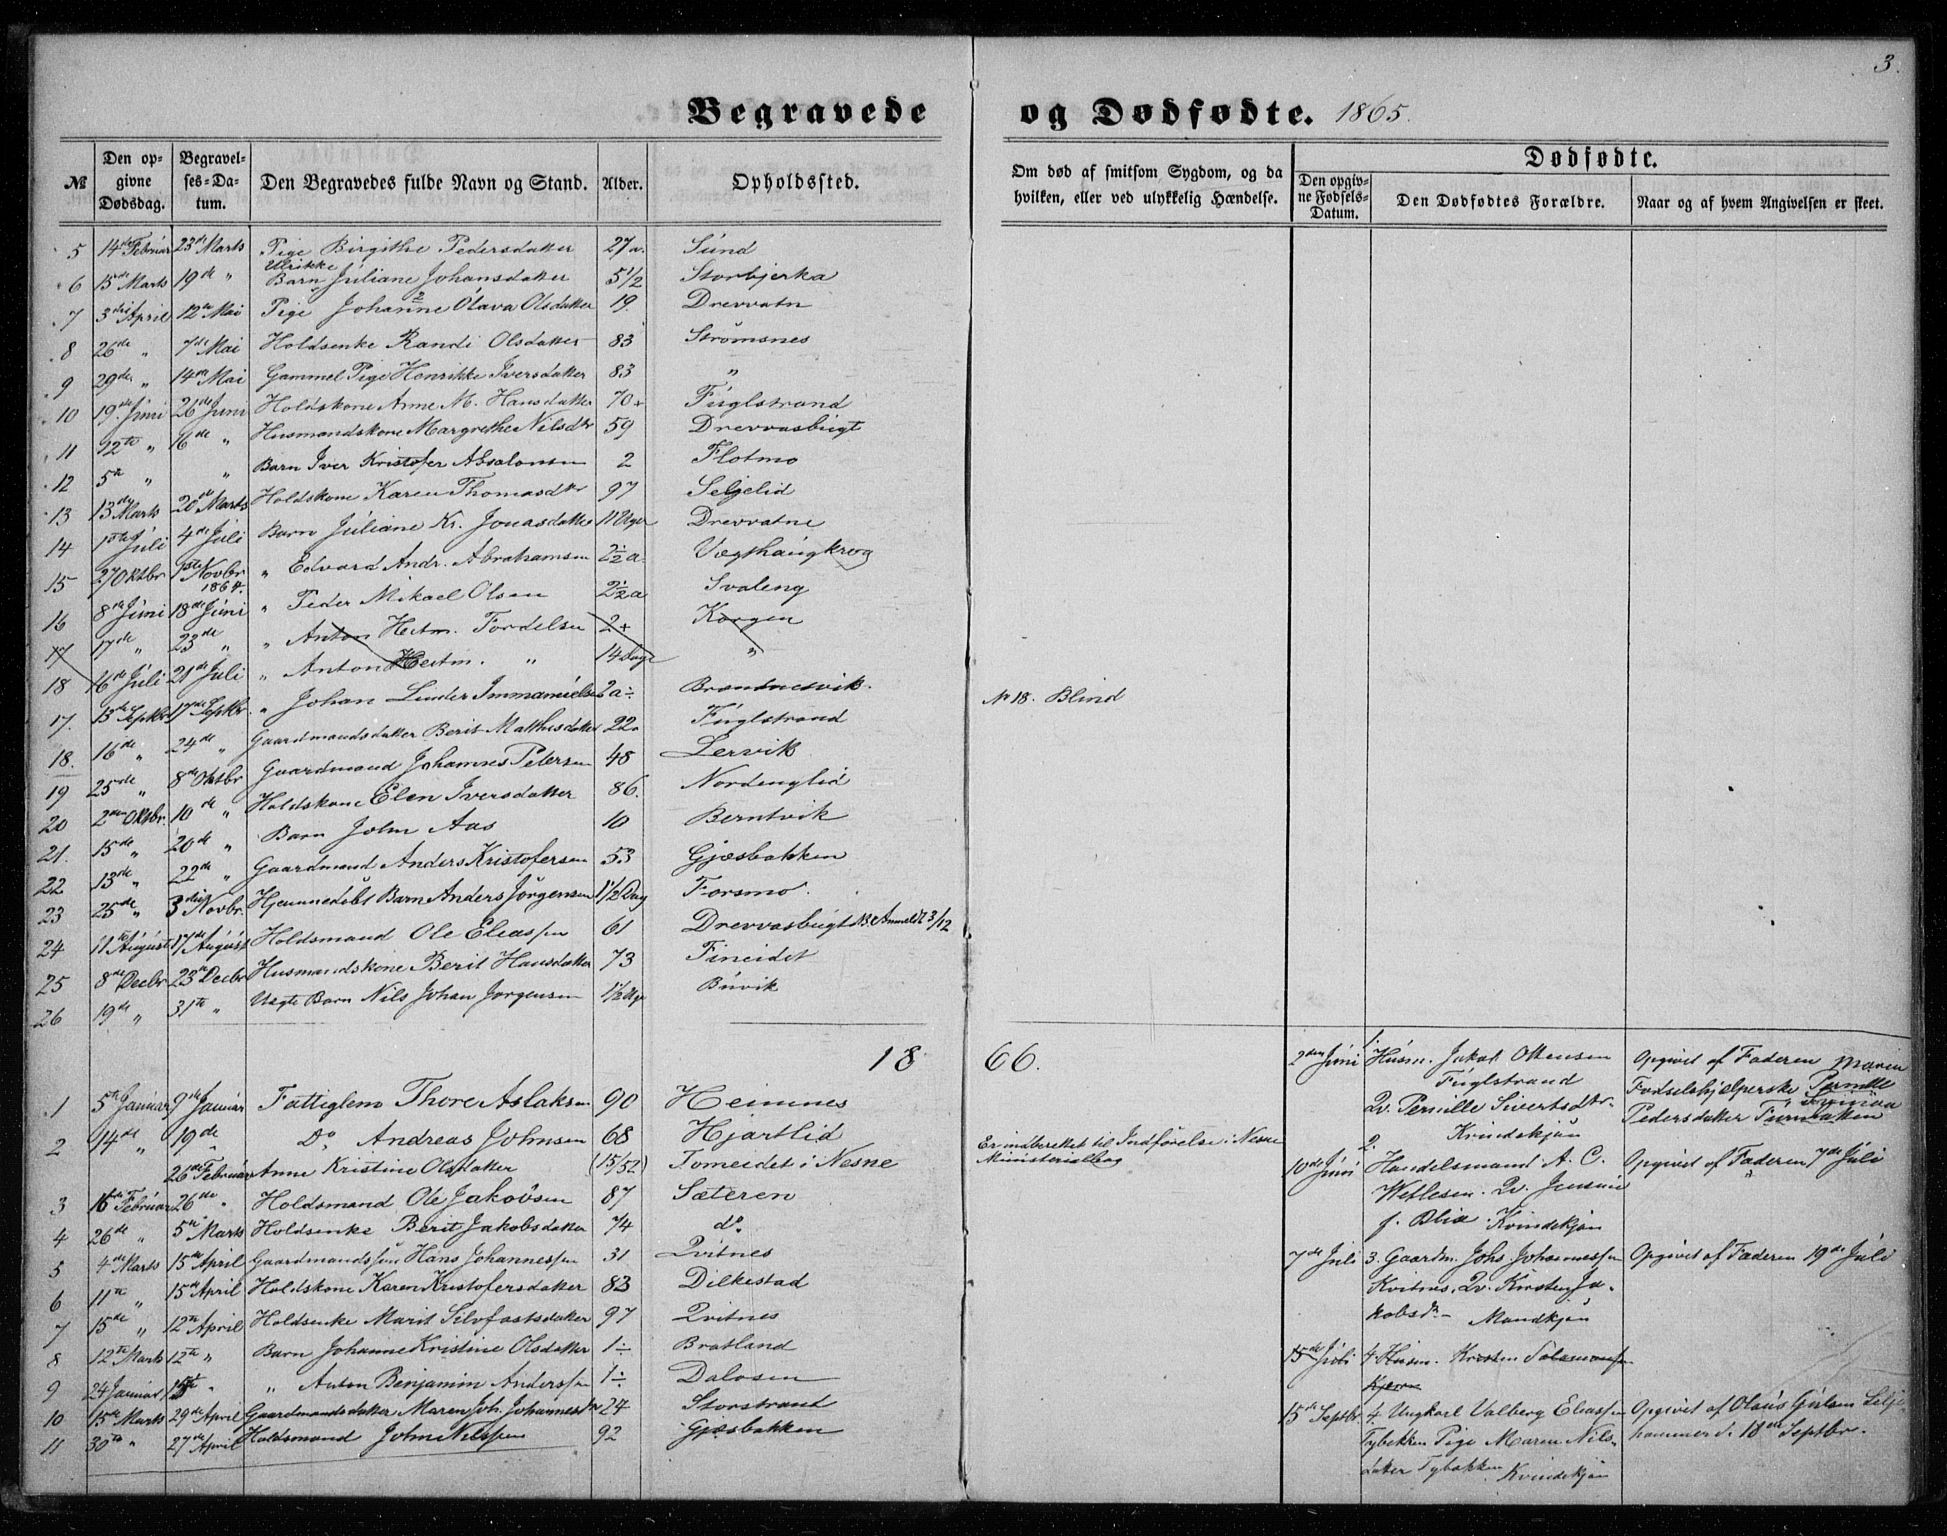 3.
Begravede og Dødfødte. 1865.
№ Den opgivne Dødsdag. Begravelses-Datum. Den Begravedes fulde Navn og Stand. Alder. Opholdssted. Om død af smitsom Sygdom, og da hvilken, eller ved ulykkelig Hændelse. Dødfødte. Den opgivne Fødsels-Datum. Den Dødfødtes Forældre. Naar og af hvem Angivelsen er skeet.
5 14de Februar 23de Marts Pige Birgithe Pedersdatter 27 a. Sund
Ulrikke
6 15de Marts 19de " Barn Juliane Johansdatter 5 1/2 Storbjerka
7 3die April 12te Mai Pige Johanne Olava Olsdatter 19. Drevvatn
8 26de " 7de Mai Holdsenke Randi Olsdatter 83 Strømsnes
9 29de " 14de Mai Gammel Pige Henrikke Iversdatter 83 "
10 19de Juni 26de Juni Holdskone Anne M. Hansdatter 70 Fuglstrand
11 12te " 16de " Husmandskone Margrethe Nilsdtr 59 Drevvasbugt
12 5te " " Barn Iver Kristofer Absalonsen 2 Flotmo
13 13de Marts 20de Marts Holdskone Karen Thomasdtr 97 Seljelid
14 1ste Juli 4de Juli Barn Juliane Kr. Jonasdatter 11 Uger Drevvatne
15 27 Oktbr 1ste Novbr 1864. " Edvard Andr. Abrahamsen 2 1/2 a. Vægthaugkrog
16 8de Juni 18de Juni " Peder Mikael Olsen 2 1/2 a Svaleng
17 17de " 23de " " Anton Heitm. Fordelsen 2 Korgen
18 16de Juli 21de Juli " Anton Heitm. " 14 Dage "
17. 13de Septbr 17de Septbr. " Johan Linder Immanuelsen 2 a ÷ Brændnesvik.
18. 16de " 24de " Gaardmandsdatter Berit Mathisdatter 22 Fuglstrand № 18. Blind
19 25de " 8de Oktbr Gaardmand Johannes Petersen 48 Lervik
20 2den Oktbr. 10de " Holdskone Elen Iversdatter 86. Nordenglid
21. 15de " 20de " Barn John Aas 10 Berntvik
22 13de " 22de " Gaardmand Anders Kristofersen 53 Gjæsbakken
23 25de " 3die Novbr. Hjemmedøbt Barn Anders Jørgensen 1 1/2 Dag Forsmo.
24 11te August 17de August Holdsmand Ole Eliassen 61 Drevvasbugt NB. Anmeldt 3/12
25 8de Decbr 23de Decbr Husmandskone Berit Hansdatter 73 Fineidet
26 19de " 31te " Uægte Barn Nils Johan Jørgensen 1 1/2 Uge Buvik
1866.
1 5te Januar 9de Januar Fattiglem Thore Aslaksen 90 Hemnes
2 14de " 19de " Do Andreas Johnsen 68 Hjartlid
26de Februar Anne Kristine Olsdatter (15/52) Fomeidet i Nesne Er indberettet til Indførelse i Nesne Ministerialbog
3 16de Februar 26de " Holdsmand Ole Jakobsen 87 Sæteren
4 26de " 5te Marts Holdsenke Berit Jakobsdatter 74 do.
5 4de Marts 15de April Gaardmandssøn Hans Johannessen 31 Qvitnes
6 11te " 15de April Holdskone Karen Kristofersdatter 83 Dilkestad
7 15de " 12te April Holdsenke Marit Silfastsdatter 97 Qvitnes
8 12te Marts 12te " Barn Johanne Kristine Olsdatter 1 ÷ Bratland
9 24 Januar 15te " " Anton Benjamin Anderssen 1 ÷ Dalosen
10 15de Marts 29de April Gaardmandsdatter Maren Joh. Johannesdtr 24 Storstrand
11 30te " 27de April Holdsmand John Nilssen 92 Gjæsbakken
2den Juni 1. Husm. Jakob Ottensen Opgivet af Faderen Maren
Fuglstrand Fødselshjelperske Pernille
Qv. Pernille Sivertsdtr. Pedersdatter Turmoen
Kvindekjøn
10de Juni 2. Handelsmand A. C. Opgivet af Faderen 7de Juli
Wetlesen. Qv. Jensine
f. Blix Kvindekjøn
7de Juli 3. Gaardm. Johs. Johannessen Opgivet af Faderen 19de Juli
Kvitnes, Qv. Kirsten Ja-
kobsdr. Mandkjøn
15de Juli 4 Husm. Kristen Salamonsen
Kjern
15de Septbr. 4 Ungkarl Valberg Eliassen Opgivet af Olaus Selje-
Tybekken Pige Maren Nils- hammer d. 18de Septbr.
datter Tybækken Kvindekjøn